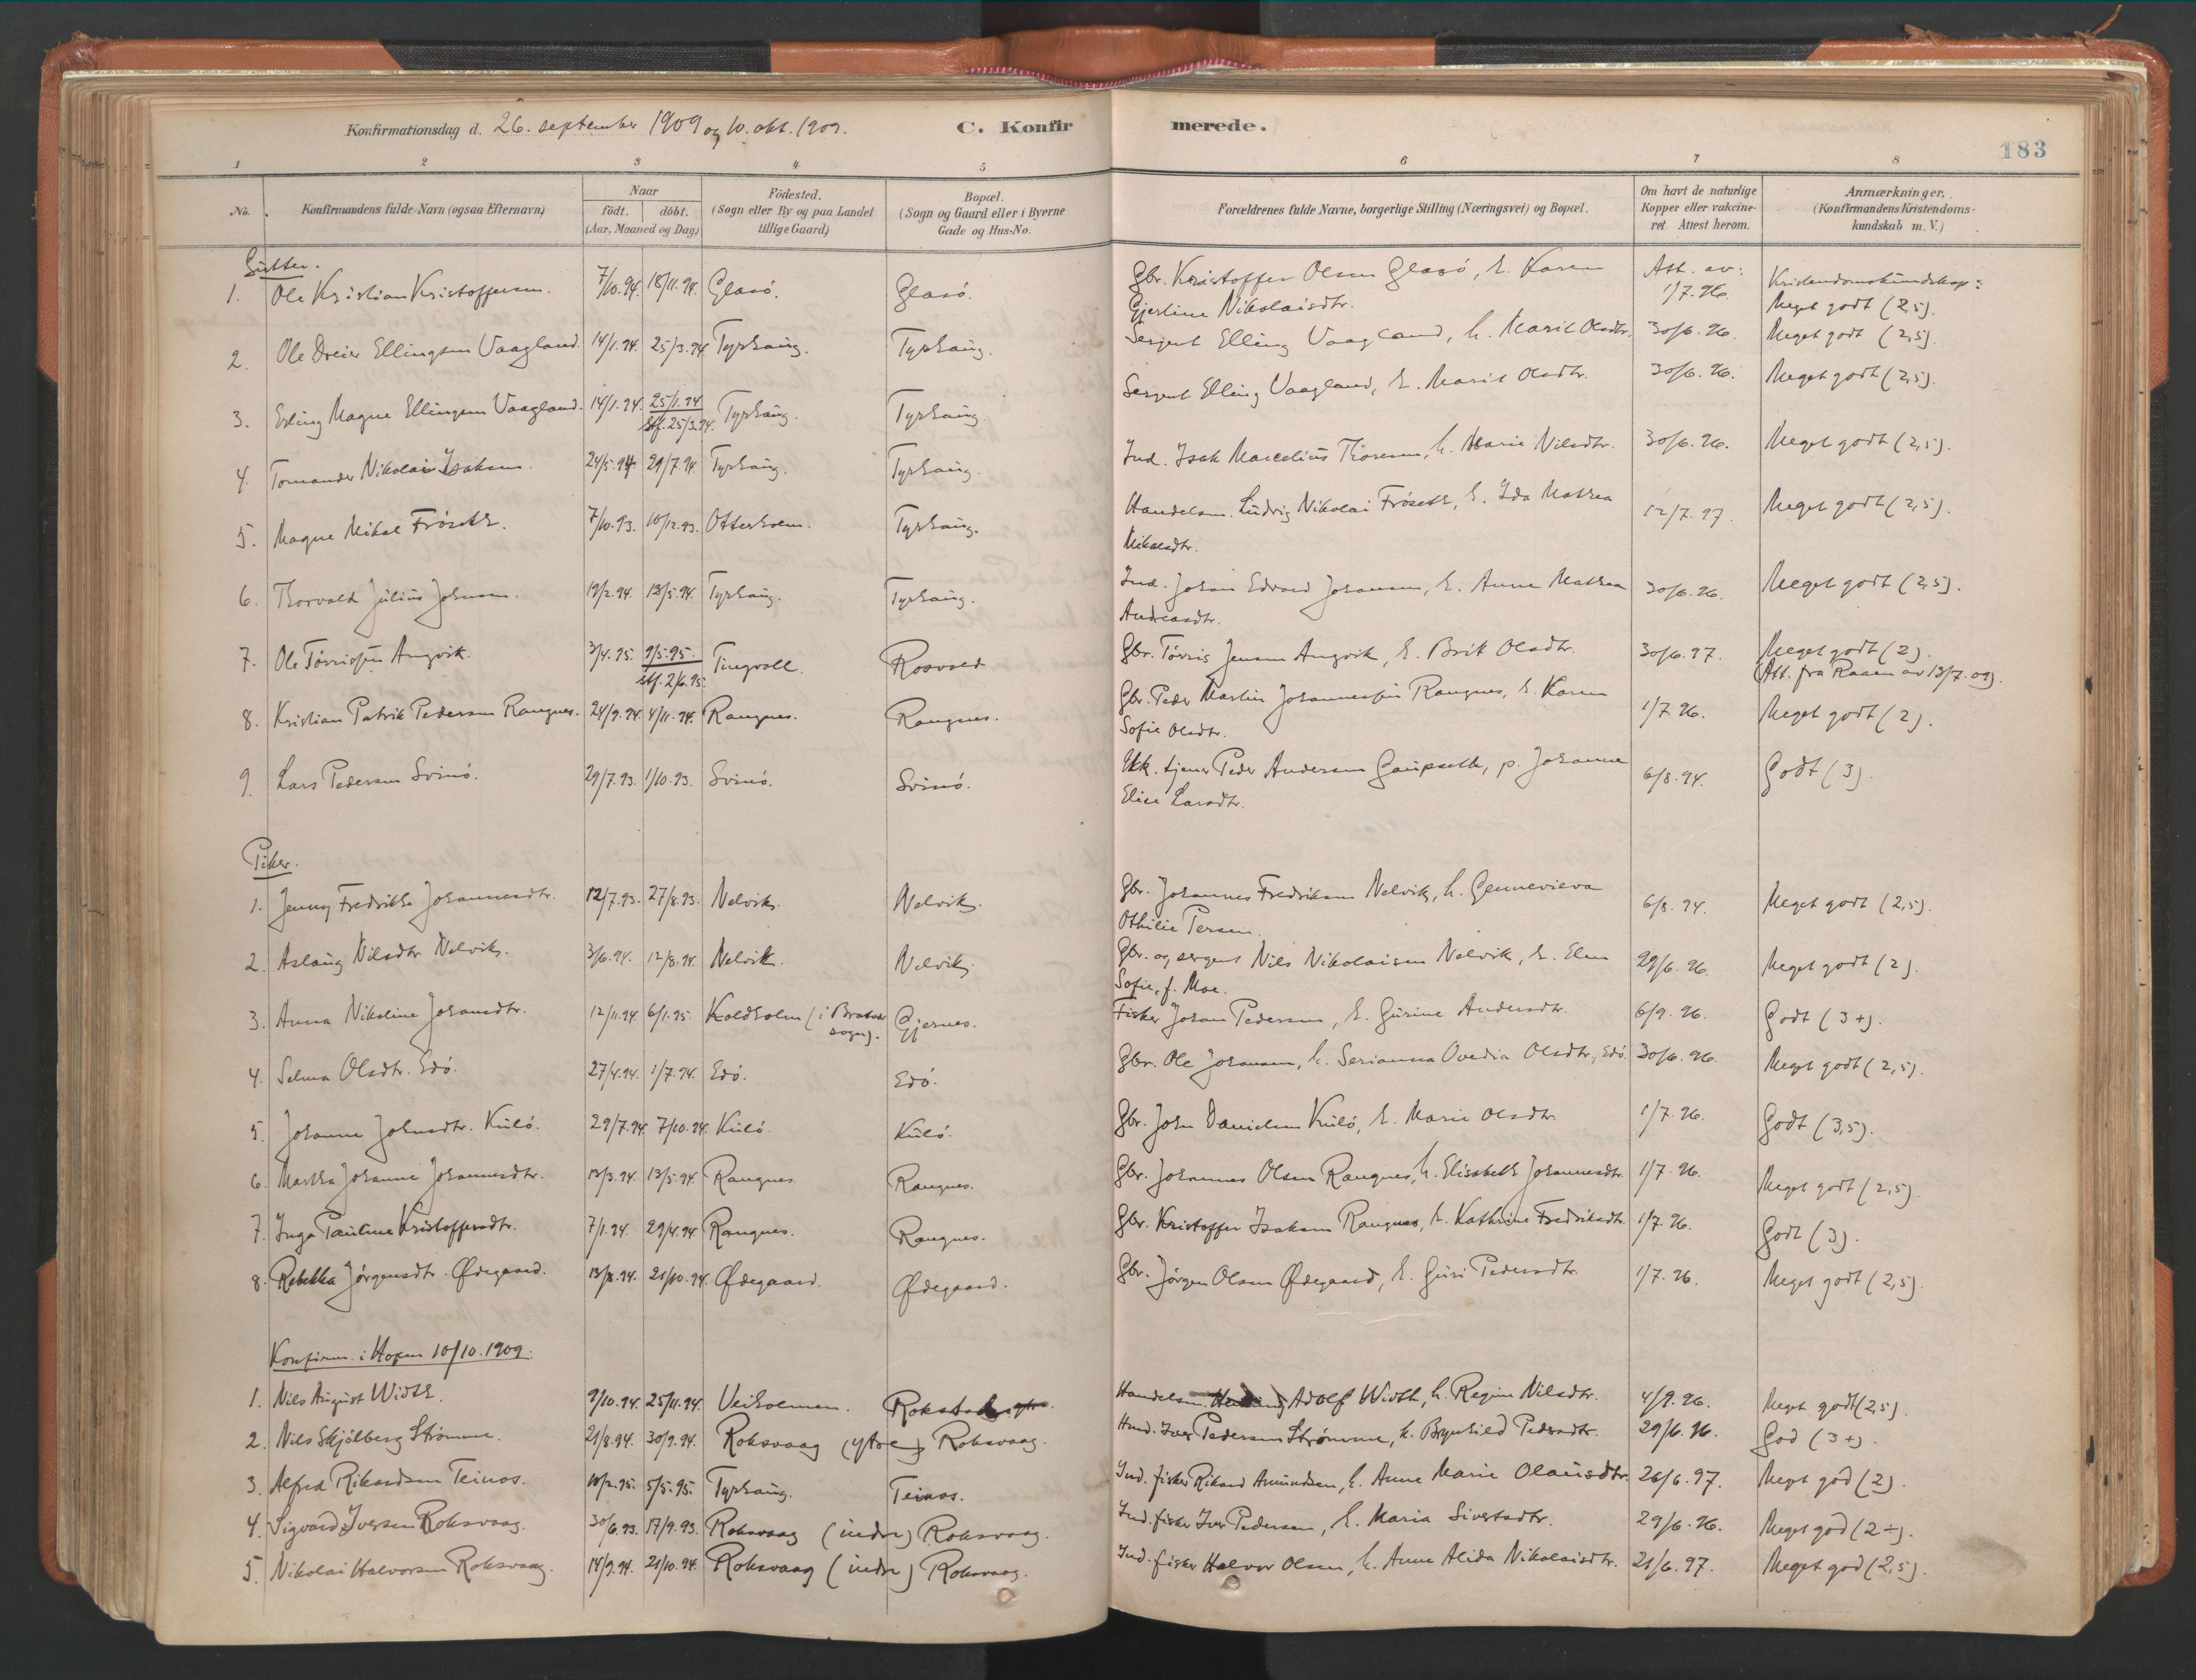 Konfirmationsdag d. 26. september 1909 og 10. okt. 1909. C. Konfirmerede.
183
1 2 3 4 5 6 7 8
No. Konfirmandens fulde Navn (ogsaa Efternavn) Naar födt. döbt. (Aar, Maaned og Dag) Födested. (Sogn eller By og paa Landet tillige Gaard) Bopæl. (Sogn og Gaard eller i Byerne Gade og Hus-No. Forældrenes fulde Navne, borgerlige Stilling (Næringsvei) og Bopæl. Om havt de naturlige Kopper eller vakcineret. Attest herom. Anmærkninger. (Konfirmandens Kristendomskundskab m. V.)
Gutter.
1. Ole Kristian Kristoffersen. 7/10.94. 18/11.94. Glasö. Glasö. Gbr. Kristoffer Olsen Glasö, h. Karen Gjertine Nikolaisdtr. Att. av: 1/7.96. Kristendomskundskap: Meget godt (2,5).
2. Ole Dreier Ellingsen Vaagland. 14/1.94. 25/3.94. Tyrhaug. Tyrhaug. Sergent Elling Vaagland, h. Marit Olsdtr. 30/6.96. Meget godt (2,5).
3. Erling Magne Ellingsen Vaagland. 14/1.94. 25/1.94 stf. 25/3.94. Tyrhaug. Tyrhaug. Sergent Elling Vaagland, h. Marit Olsdtr. 30/6.96. Meget godt (2,5).
4. Tomander Nikolai Isaksen. 24/5.94 29/7.94. Tyrhaug. Tyrhaug. Ind. Isak Marcelius Thoresen, h. Marie Nilsdtr. 30/6.96. Meget godt (2,5).
5. Magne Mikal Fröseth. 7/10.93. 10/12.93. Otterholm. Tyrhaug. Handelsm. Ludvig Nikolai Fröseth, h. Ida Mathea Mikalsdtr. 12/7.97. Meget godt (2,5).
6. Thorvald Julius Johnsen. 19/2.94. 13/5.94. Tyrhaug. Tyrhaug. Ind. Johan Edvard Johansen, h. Anne Mathea Andreasdtr. 30/6.96. Meget godt (2,5).
7. Ole Törrissen Angvik. 3/4.95. 9/5.95. stf. 2/6.95. Tingvoll. Rosvold Gbr. Törris Jensen Angvik, h. Brit Olsdtr. 30/6.97. Meget godt (2). (Att. fra Raaen av 13/7.09).
8. Kristian Patrik Pedersen Rangnes. 24/9.94. 4/11.94. Rangnes. Rangnes. Gbr. Peder Martin Johannessen Rangnes, h. Karen Sofie Olsdtr. 1/7.96. Meget godt (2).
9. Lars Pedersen Svinö. 29/7.93. 1/10.93. Svinö. Svinö. Ukk. tjener Peder Andersen Gaupseth, p. Johanne Elise Larsdtr. 6/8.94. Godt (3).
Piker.
1. Jenny Fredrikke Johannesdtr. 12/7.93. 27/8.93. Nelvik. Nelvik. Gbr. Johannes Fredriksen Nelvik, h. Gennevieva Othilie Persen. 6/8.94. Meget godt (2,5).
2. Aslaug Nilsdtr Nelvik. 3/6.94. 12/8.94. Nelvik. Nelvik. Gbr. og sergent Nils Nikolaisen Nelvik, h. Elen Sofie, f. Moe. 29/6.96. Meget godt (2).
3. Anna Nikoline Johansdtr. 12/11.94 6/1.95. Koldholm (i Bratvær sogn). Gjernes. Fisker Johan Pedersen, h. Gurine Andersdtr. 6/9.96. Godt (3+).
4. Selma Olsdtr. Edö. 27/4.94. 1/7.94. Edö. Edö. Gbr. Ole Johansen, h. Serianna Ovedia Olsdtr, Edö. 30/6.96. Meget godt (2,5).
5. Johanne Johnsdtr. Kulö. 29/7.94. 7/10.94. Kulö. Kulö. Gbr. John Danielsen Kulö, h. Marie Olsdtr 1/7.96. Godt (3,5).
6. Martha Johanne Johannesdtr. 13/3.94. 13/5.94. Rangnes. Rangnes. Gbr. Johannes Olsen Rangnes, h. Elisabeth Johannesdtr. 1/7.96. Meget godt (2,5).
7. Inga Pauline Kristoffersdtr. 7/1.94. 29/4.94. Rangnes. Rangnes. Gbr. Kristoffer Isaksen Rangnes, h. Kathrine Fredriksdtr. 1/7.96. Godt (3).
8. Rebekka Jörgensdtr. Ødegaard. 13/8.94. 21/10.94. Ødegaard. Ødegaard. Gbr. Jörgen Olsen Ødegaard, h. Guri Pedersdtr. 1/7.96. Meget godt (2,5).
Konfirm. i Hopen 10/10.1909.
1. Nils August Width. 9/10.94. 25/11.94. Veiholmen. Rokstad Handelsm. Adolf Width, h. Regine Nilsdtr. 4/9.96. Meget godt (2,5).
2. Nils Skjölberg Strömme. 21/8.94. 30/9.94. Roksvaag (ytre) Roksvaag. Hmd. Iver Pedersen Strømme, h. Brynhild Pedersdtr. 29/6.96. God (3+).
3. Alfred Rikardsen Teinos. 10/2.95. 5/5.95. Tyrhaug. Teinos. Ind. fisker Rikard Amundsen, h. Anne Marie Olausdtr. 26/6.97. Meget god (2).
4. Sigvard Iversen Roksvaag. 30/6.93. 17/9.93. Roksvaag (indre) Roksvaag. Ind. fisker Iver Pedersen, h. Maria Sivertsdtr. 29/6.96. Meget god (2÷).
5. Nikolai Halvorsen Roksvaag. 14/9.94. 21/10.94. Roksvaag (indre) Roksvaag. Ind. fisker Halvor Olsen, h. Anne Alida Nikolaisdtr. 21/6.97. Meget god (2,5).